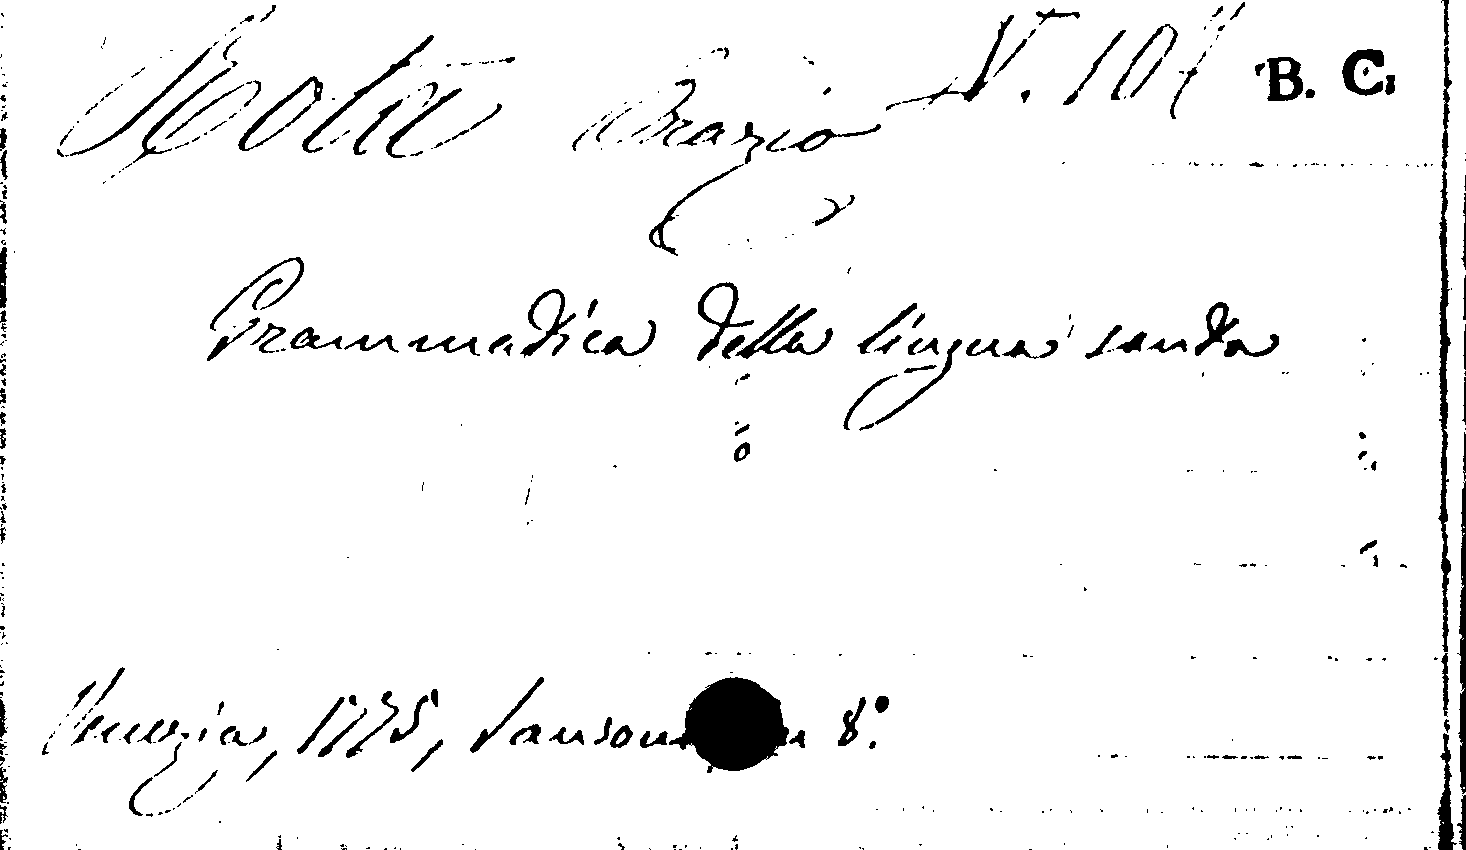 Rota Orazio V. 107 B. C.
Grammatica della lingua santa
Venezia, 1775, in 8°.